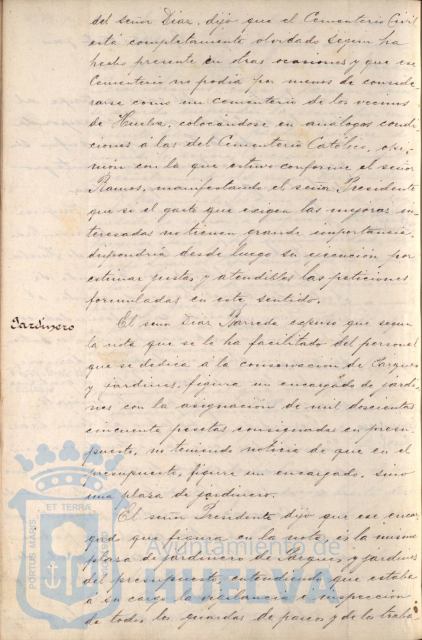 del señor Diaz, dijo que el Cementerio Civil
está completamente olvidado segun ha
hecho presente en otras ocasiones y que ese
Cementerio no podia por menos de conside
rarse como un cementerio de los vecinos
de Huelva, colocándose en análogas condi
ciones á las del Cementerio Católico, opi
nión con la que estuvo conforme el señor
Ramos, manifestando el señor Presidente
que si el gasto que exigen las mejoras in
teresadas no tienen grande importancia,
dispondria desde luego su ejecucion por
estimar justas y atendibles las peticiones
formuladas en este sentido.
Jardinero
El señor Diaz Barreda expuso que segun
la nota que se le ha facilitado del personal
que se dedica á la conservacion de Parques
y jardines, figura un encargado de jardi
nes con la asignación de mil doscientas
cincuenta pesetas consignadas en presu
puesto, no teniendo noticia de que en el
presupuesto, figure un encargado, sino
una plaza de jardinero.
El señor Presidente dijo que ese encar
gado que figura en la nota, es la misma
plaza de jardinero de Parques y jardines
del presupuesto, entendiendo que estaba
á su cargo la vigilancia é inspección
de todos los guardas de paseos y de los traba
PORTUS MARIS
ET TERRÆ
Ayuntamiento de
HUELVA